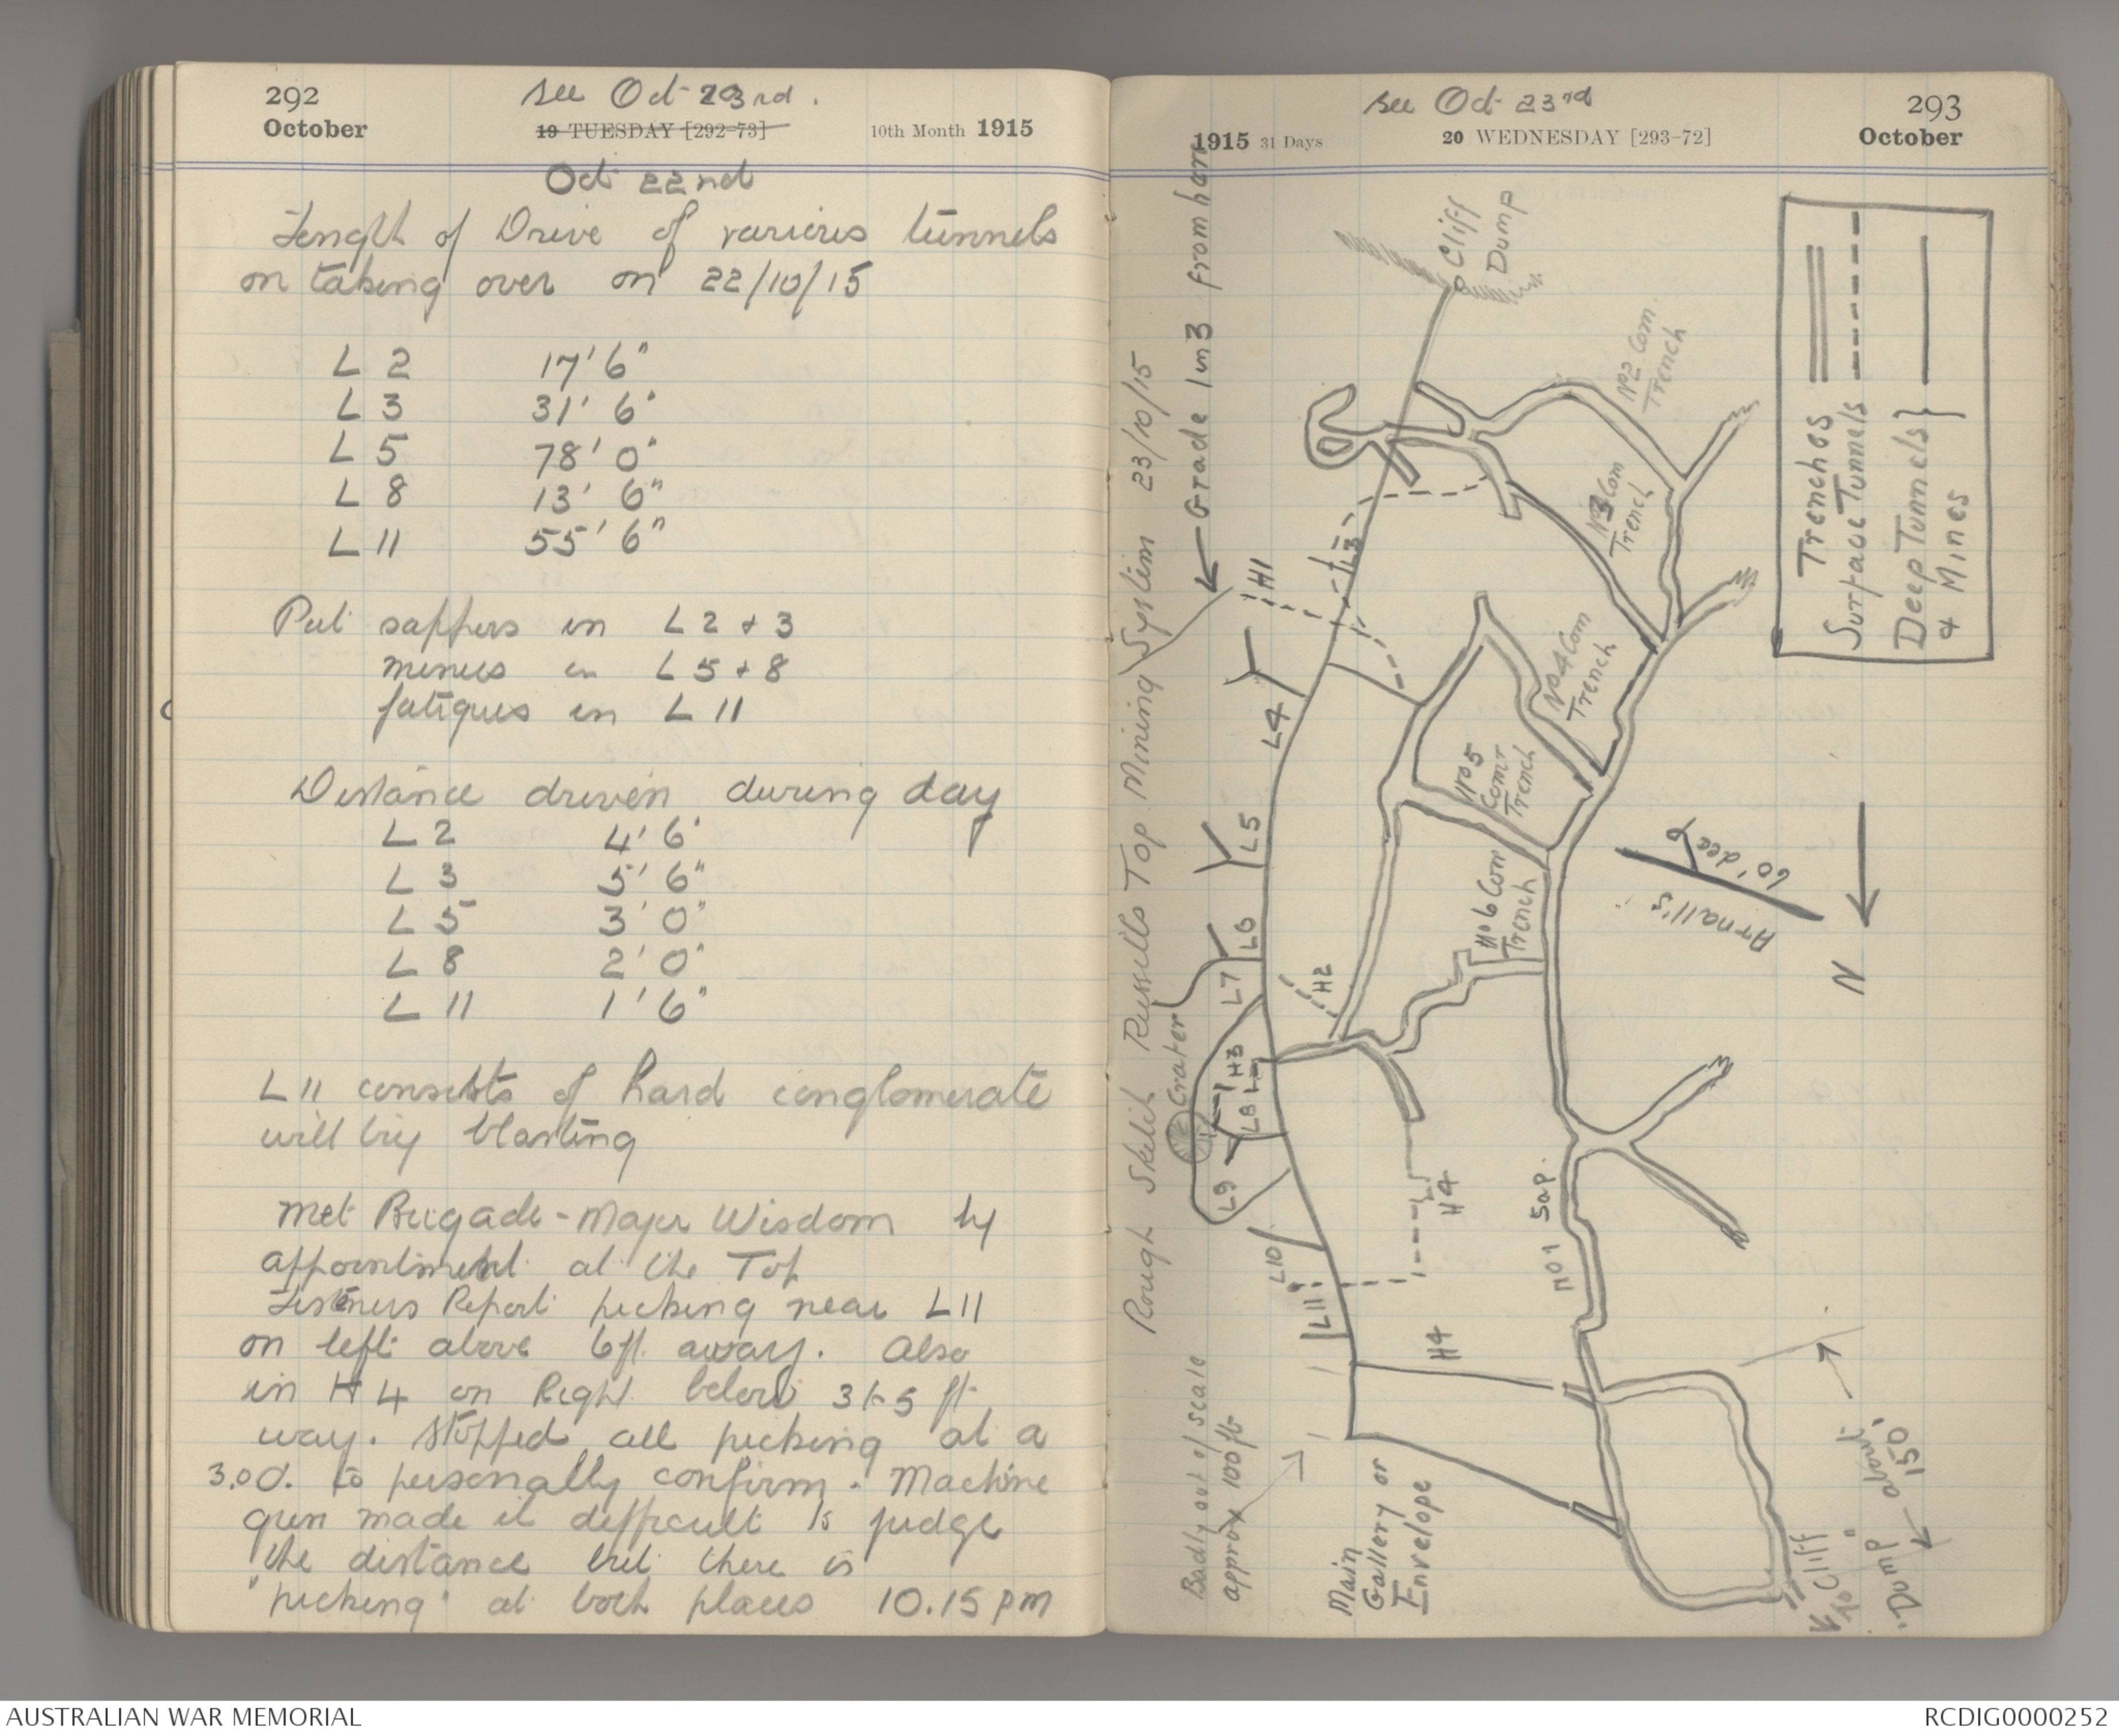 292
October
see Oct 23rd.
19 TUESDAY [292-73]
10th Month 1915
Oct 22nd
Length of Drive of various tunnels
on taking over on 22/10/15
L 2 17' 6"
L 3 31' 6"
L 5 78' 0"
L 8 13' 6"
L 11 55' 6"
Put sappers in L 2 + 3
miners in L 5 + 8
fatigues in L 11
Distance driven during day
L 2 4' 6"
L 3 5' 6"
L 5 3' 0"
L 8 2' 0"
L 11 1' 6"
L 11 consists of hard conglomerate
will try blasting
Met Brigade-Major Wisdom by
appointment at the Top
Listeners Report picking near L 11
on left above 6ft. away. Also
in H 4 on Right below 3 to 5 ft
way. Stopped all picking at a
3.00. to personally confirm. Machine
gun made it difficult to judge
the distance but there is
"picking" at both places 10.15 pm
see Oct 23rd
293
1915 31 Days
20 WEDNESDAY [293-72]
October
Rough Sketch Russells Top Mining System 23/10/15
Grade 1 in 3 from here
Cliff
Dump
No 2 Com.
Trench
No 3 Com
Trench
No 4 Com
Trench
No 5
Comn
Trench
No 6 Com
Trench
Trenches
Surface Tunnels
Deep Tunnels
& Mines
H1
L3
L4
L5
L6
L7
H2
Crater
H3
L8
L9
L10
L11
H4
H4
No 1 Sap.
Arnall's
60' deep
N
Badly out of scale
approx 100 ft
Main
Gallery or
Envelope
to Cliff
"Dump" about
150'